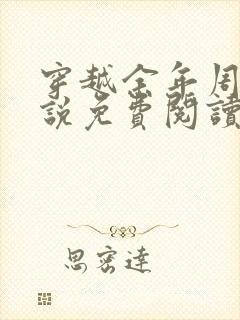 穿越全年周
說免費閱讀
思密達